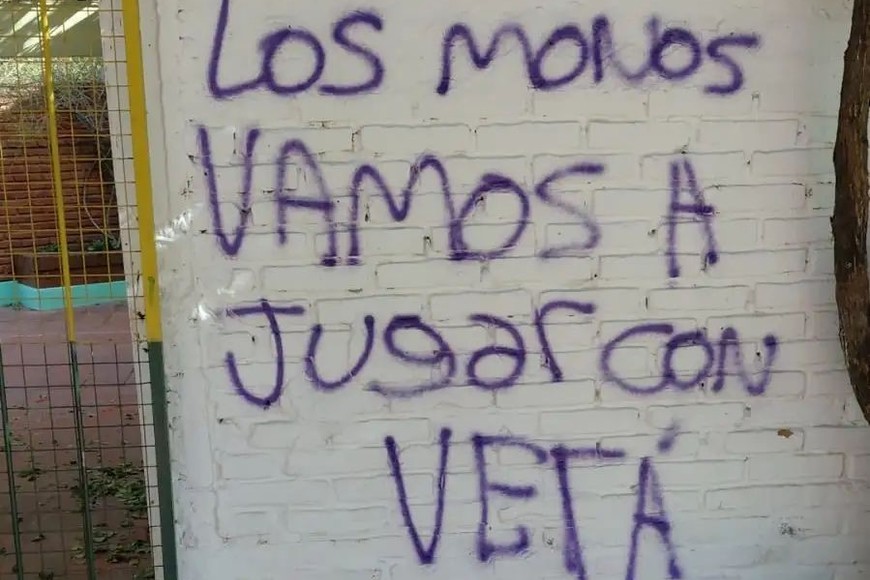 LOS MONOS
VAMOS A
JUgar CON
VETÁ